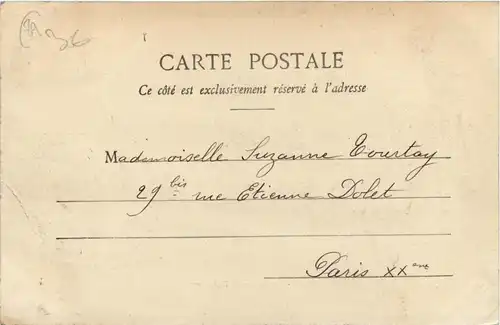 CARTE POSTALE
Ce côté est exclusivement réservé à l'adresse
Mademoiselle Suzanne Tourtay
29 bis rue Etienne Dolet
Paris XXème